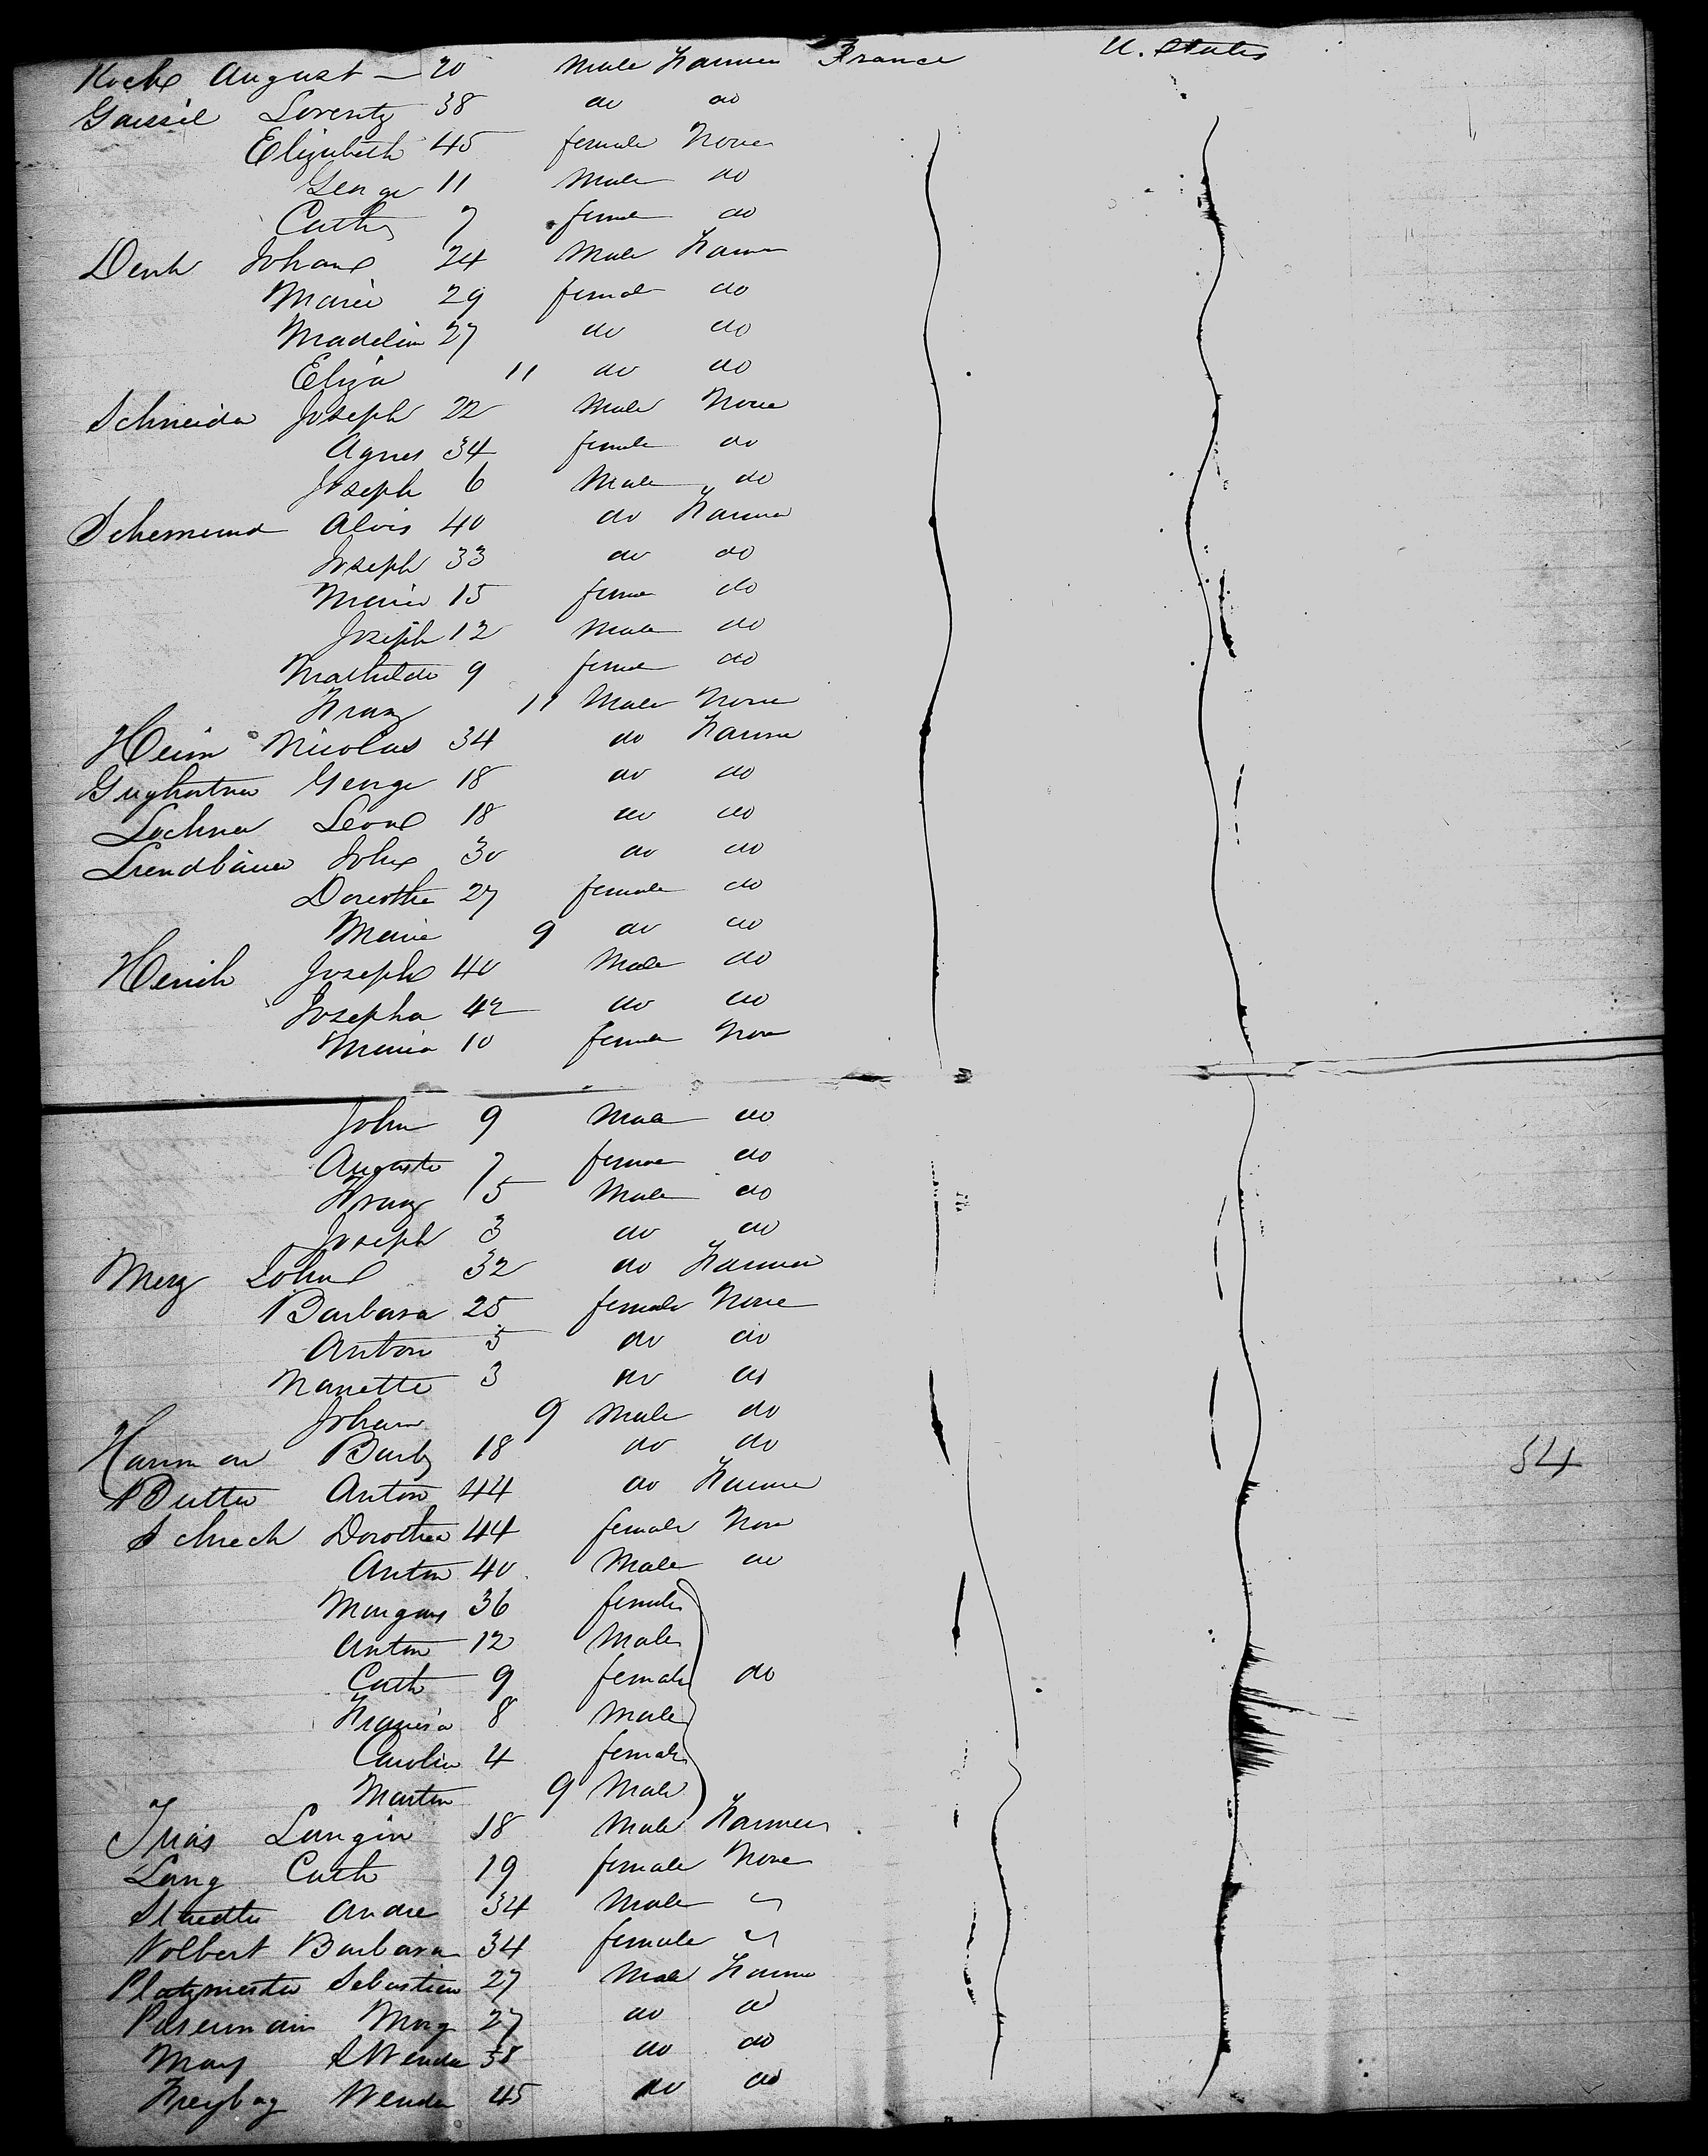 Koch August 20 Male Farmer France U. States
Gaissil Lorentz 38 do do
Elizabeth 45 female None
George 11 Male do
Cath 7 female do
Denk Johan 24 Male Farmer
Marie 29 female do
Madelin 27 do do
Eliza 11 do do
Schneider Joseph 22 Male None
Agnes 34 female do
Joseph 6 Male do
Alois 40 do Farmer
Joseph 33 do do
Maria 15 female do
Joseph 12 Male do
Mathilde 9 female do
Franz 11 Male None
Heim Nicolas 34 do Farmer
George 18 do do
Lochner Leon 18 do do
John 30 do do
Dorothe 27 female do
Marie 9 do do
Joseph 40 Male do
Josepha 42 do do
Maria 10 female None
John 9 Male do
Auguste 7 female do
Franz 5 Male do
Joseph 3 do do
Merz John 32 do Farmer
Barbara 25 female None
Anton 5 do do
Nanette 3 do do
Johan 9 Male do
Hamman Barb 18 do do
Butter Anton 44 do Farmer
Schech Dorothea 44 female None
Anton 40 Male do
36 female
Anton 12 Male
Cath 9 female do
8 Male
Carolin 4 female
Martin 9 Male
54
18 Male Farmer
Lang Cath 19 female None
Andre 34 Male
Volbert Barbara 34 female
Platzmeister Sebastian 27 Male Farmer
Marg 27 do do
May 38 do do
Freybag Wendn 45 do do